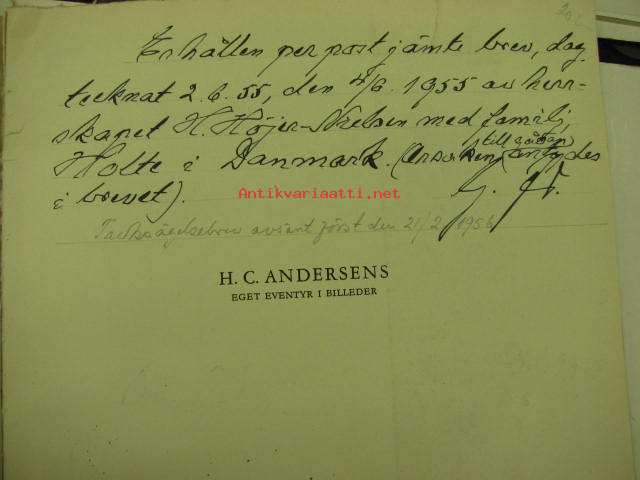 Erhållen per post jämte brev, dag-
tecknat 2.6.55, den 4/6. 1955 av herr-
skapet H. Höjer-Nielsen med familj,
Holte i Danmark. (Orsaken till gåvan antydes
i brevet).
Antikvariaatti.net
Tacksägelsebrev avsänt först den 21/2 1956
H. C. ANDERSENS
EGET EVENTYR I BILLEDER